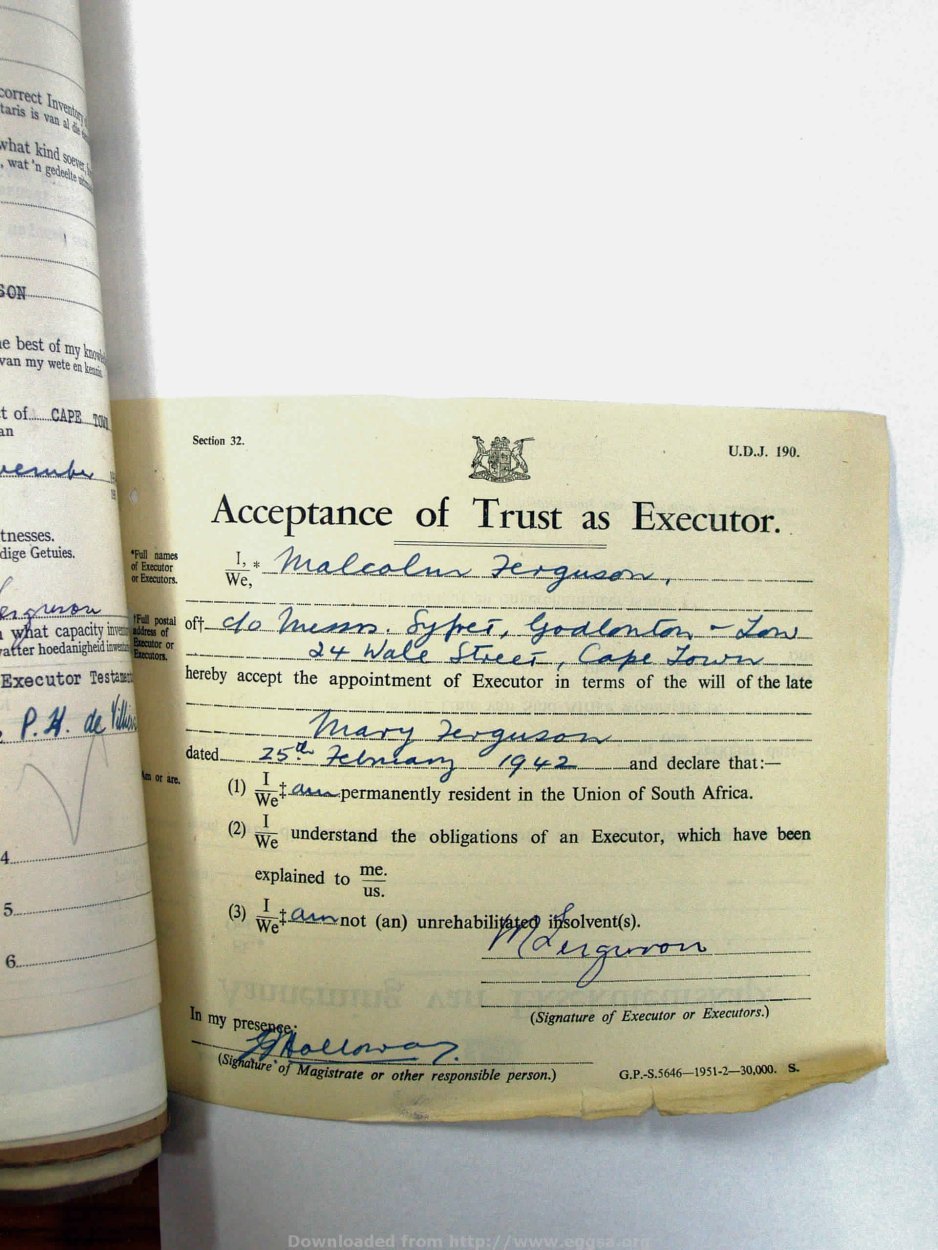 correct Inventory
taris is van al die
what kind soever,
, wat 'n gedeelte
SON
e best of my
van my wete en kennis.
t of CAPE TOWN
an
vember
tnesses.
dige Getuies.
erguson
what capacity
hoedanigheid
Executor
P. H. de Villiers
4.
5.
6.
Section 32.
U.D.J. 190.
Acceptance of Trust as Executor.
*Full names
of Executor
or Executors.
I,
We,
* Malcolm Ferguson,
†Full postal
address of
Executor or
Executors.
of† c/o Messrs. Syfret, Godlonton - Low
24 Wale Street, Cape Town
hereby accept the appointment of Executor in terms of the will of the late
Mary Ferguson
dated 25th February 1942 and declare that:—
Am or are.
(1) I
We ‡ am permanently resident in the Union of South Africa.
(2) I
We understand the obligations of an Executor, which have been
explained to me.
us.
(3) I
We ‡ am not (an) unrehabilitated insolvent(s).
M Ferguson
(Signature of Executor or Executors.)
In my presence:
Holloway.
(Signature of Magistrate or other responsible person.)
G.P.-S.5646—1951-2—30,000. S.
Downloaded from http://www.eggsa.org